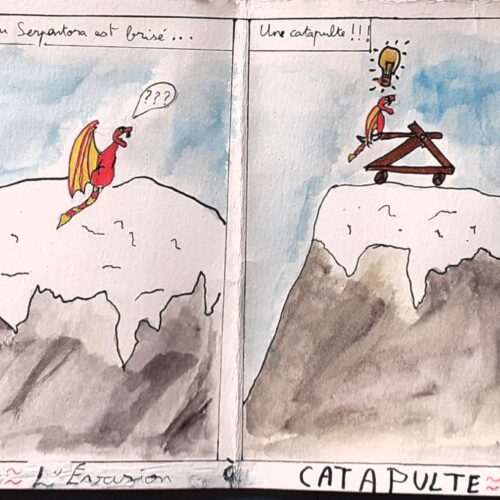 Serpentora est brisé...
Une catapulte !!!
???
≈ L'Évasion à CATAPULTE ≈